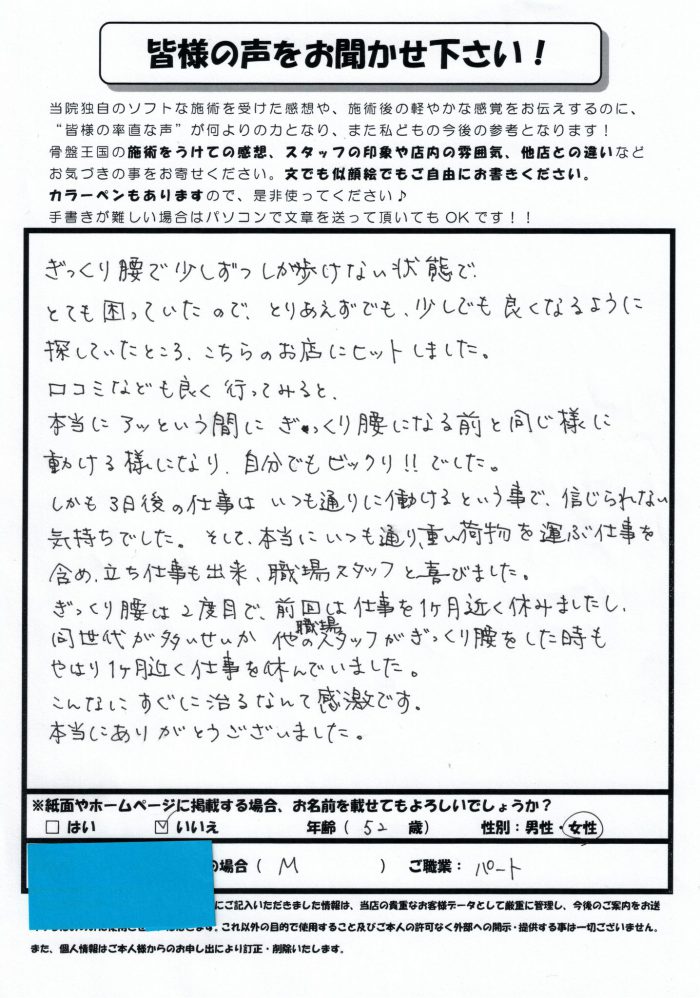 皆様の声をお聞かせ下さい！
当院独自のソフトな施術を受けた感想や、施術後の軽やかな感覚をお伝えするのに、
“皆様の率直な声”が何よりの力となり、また私どもの今後の参考となります！
骨盤王国の施術をうけての感想、スタッフの印象や店内の雰囲気、他店との違いなど
お気づきの事をお寄せください。文でも似顔絵でもご自由にお書きください。
カラーペンもありますので、是非使ってください♪
手書きが難しい場合はパソコンで文章を送って頂いてもOKです！！
ぎっくり腰で少しずつしか歩けない状態で、
とても困っていたので、とりあえずでも、少しでも良くなるように
探していたところ、こちらのお店にヒットしました。
口コミなども良く行ってみると、
本当にアッという間にぎっくり腰になる前と同じ様に
動ける様になり、自分でもビックリ!!でした。
しかも3日後の仕事はいつも通りに働けるという事で、信じられない
気持ちでした。そして、本当にいつも通り、重い荷物を運ぶ仕事を
含め、立ち仕事も出来、職場スタッフと喜びました。
ぎっくり腰は2度目で、前回は仕事を1ヶ月近く休みましたし、
同世代が多いせいか他の職場スタッフがぎっくり腰をした時も
やはり1ヶ月近く仕事を休んでいました。
こんなにすぐに治るなんて感激です。
本当にありがとうございました。
※紙面やホームページに掲載する場合、お名前を載せてもよろしいでしょうか？
□ はい ☑ いいえ 年齢（ 52 歳） 性別：男性・女性
の場合（ M ） ご職業： パート
にご記入いただきました情報は、当店の貴重なお客様データとして厳重に管理し、今後のご案内をお送
これ以外の目的で使用すること及びご本人の許可なく外部への開示・提供する事は一切ございません。
また、個人情報はご本人様からのお申し出により訂正・削除いたします。